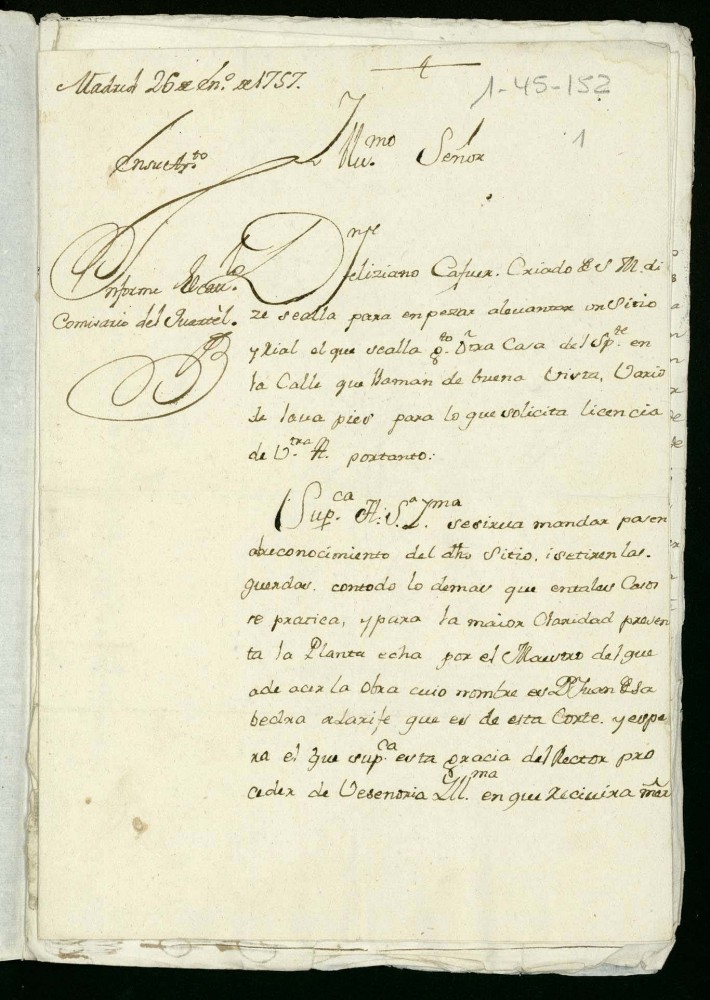 Madrid 26 de En.º de 1757.
1-45-152
1
En su Ay.to
Yllu.mo Señor
Ynforme el Cau.lo
Comisario del Quartèl.
Dn. Feliziano Cafuer. Criado de S M. di
ze se alla para enpezar alevantar un Sitio
y Rial el que se alla otra Casa del Sp.te en
la Calle que llaman de buena Vista, Vario
de lava pies para lo que solicita licencia
de V.tra A. por tanto:
Sup.ca A. S.a Y.ma se sirva mandar pasen
al reconocimiento del dho Sitio, i se tiren las
guerdas. con todo lo demas que en tales Casos
se pratica, y para la maior Claridad presen
ta la Planta echa por el Maestro del que
a de acer la Obra cuio nombre es Dn. Juan de Sa
bedra alarife que es de esta Corte. y espe
ra el que sup.ca esta gracia del Rector pro
ceder de Vesenoria Yll.ma en que Recivira mrd